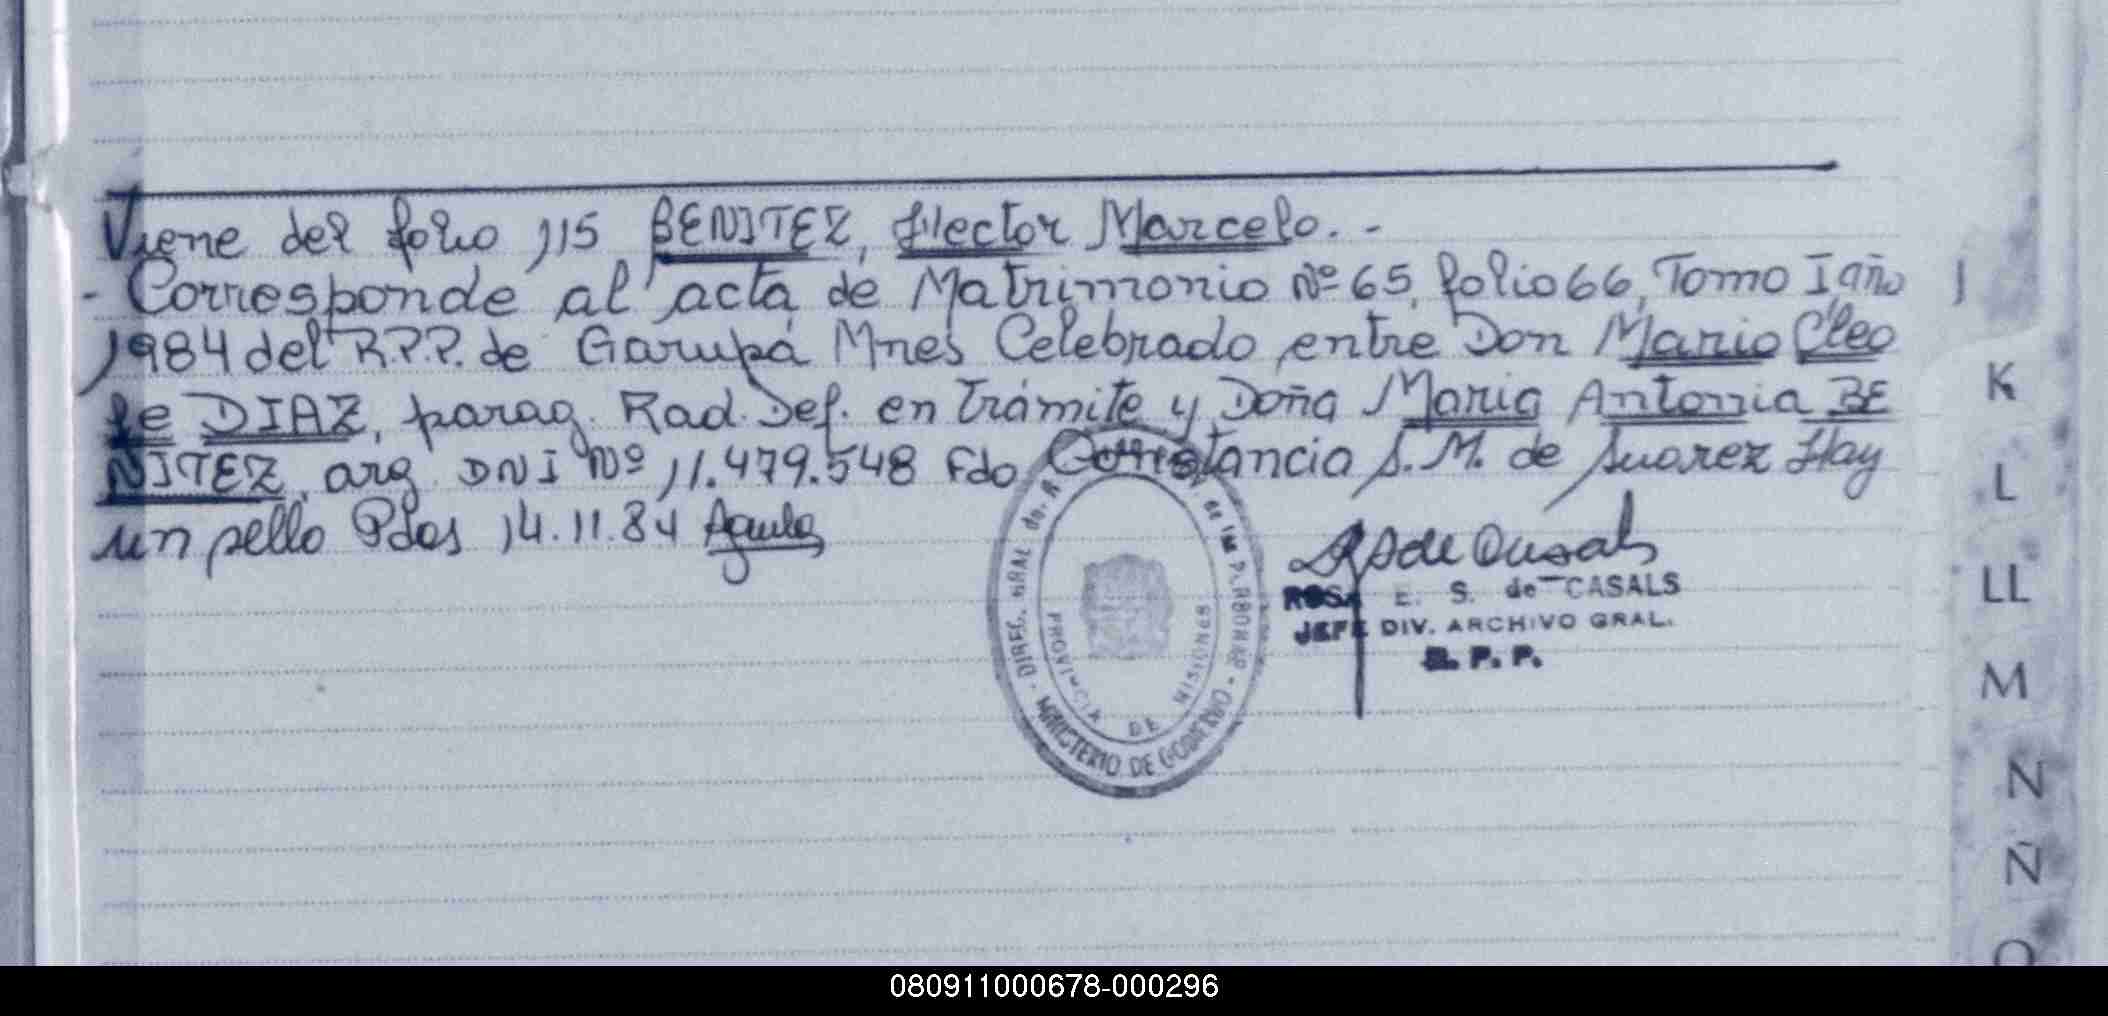 Viene del folio 115 BENITEZ, Hector Marcelo. -
- Corresponde al acta de Matrimonio Nº 65, folio 66, Tomo I año
1984 del R.P.P. de Garupá Mnes Celebrado entre Don Mario Cleo
fe DIAZ, parag. Rad. Def. en trámite y Doña Maria Antonia BE
NITEZ, arg. DNI Nº 11.479.548 Fdo Constancia S. M. de Suarez Hay
un sello Pdas 14.11.84
ROSA E. S. de CASALS
JEFE DIV. ARCHIVO GRAL.
R. P. P.
DIREC. GRAL de
MINISTERIO DE GOBIERNO
PROVINCIA DE MISIONES
J
K
L
LL
M
N
Ñ
O
080911000678-000296